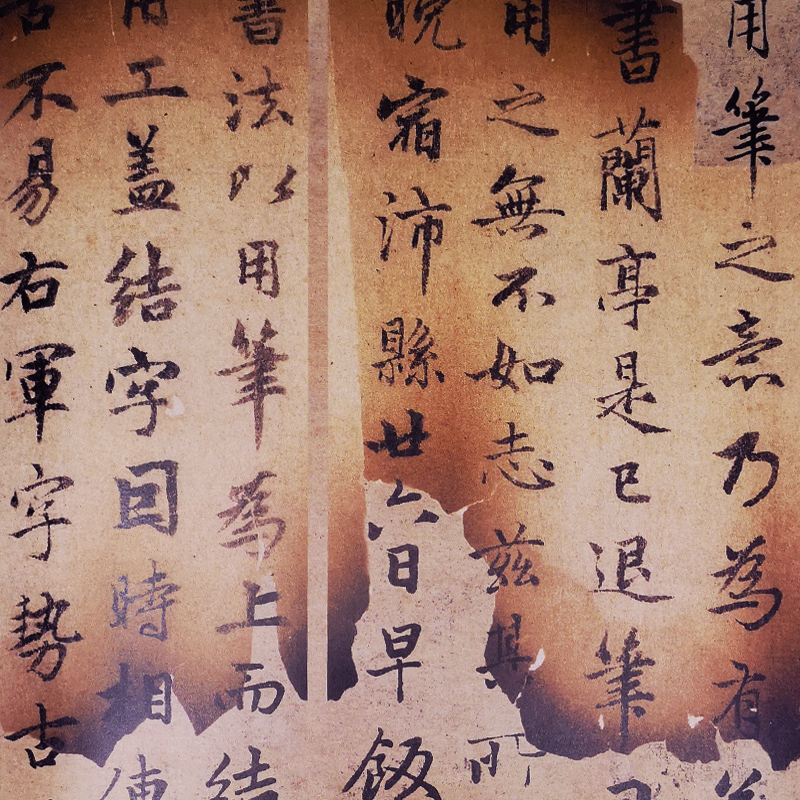 用筆之意乃為有
書蘭亭是已退筆
用之無不如志茲其所
晚宿沛縣廿六日早飯
書法以用筆為上而結
用工盖結字因時相傳
古不易右軍字勢古